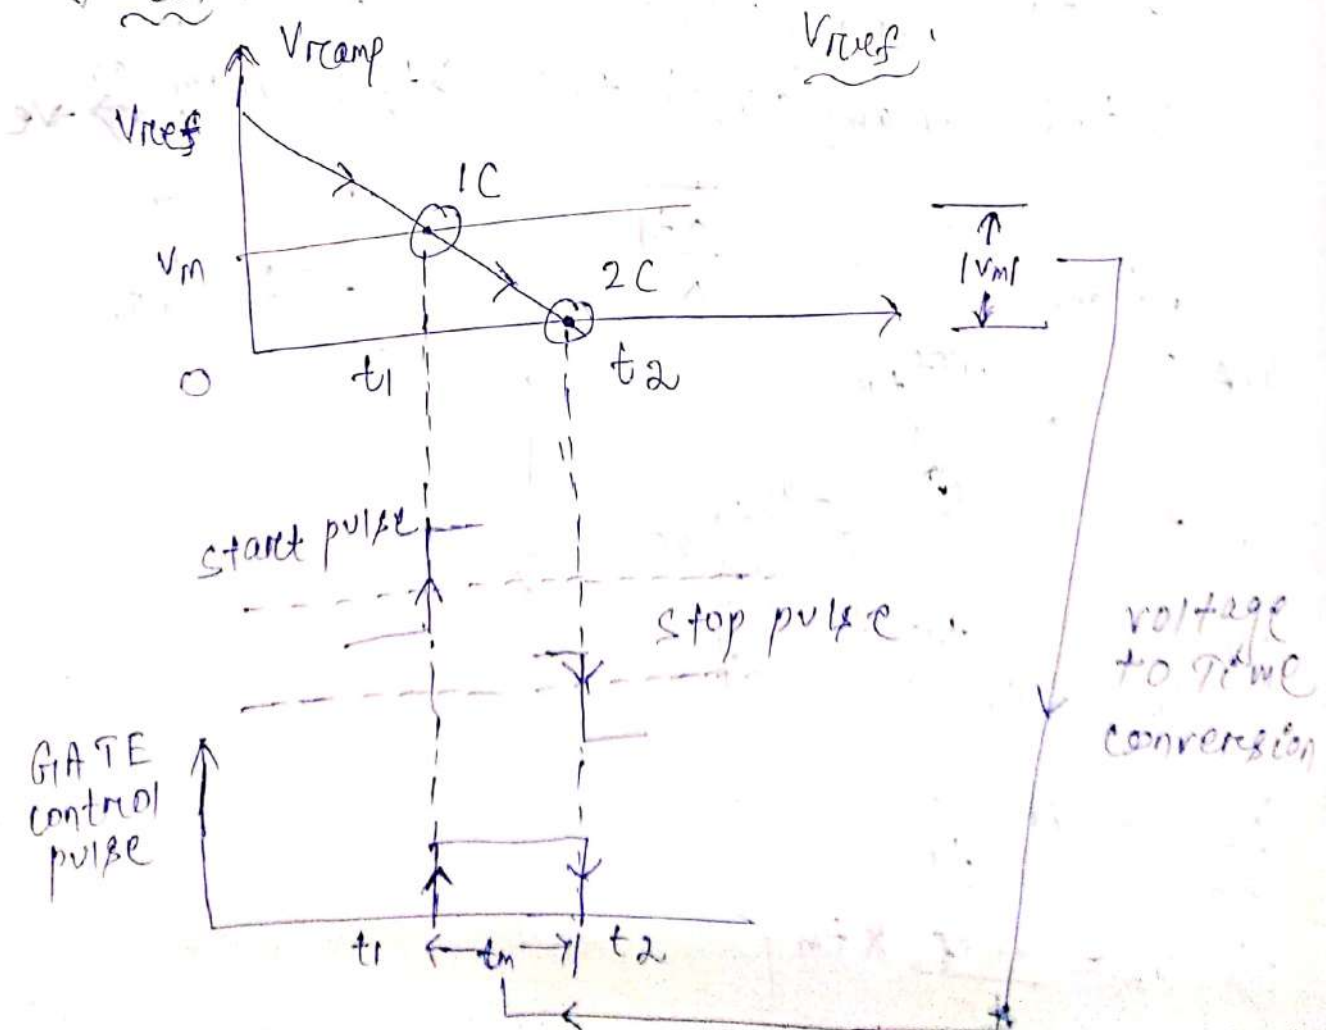 Vramp
Vref
Vref
1C
Vm
|Vm|
2C
O
t1
t2
start pulse
stop pulse
voltage
to Time
conversion
GATE
control
pulse
t1
tm
t2